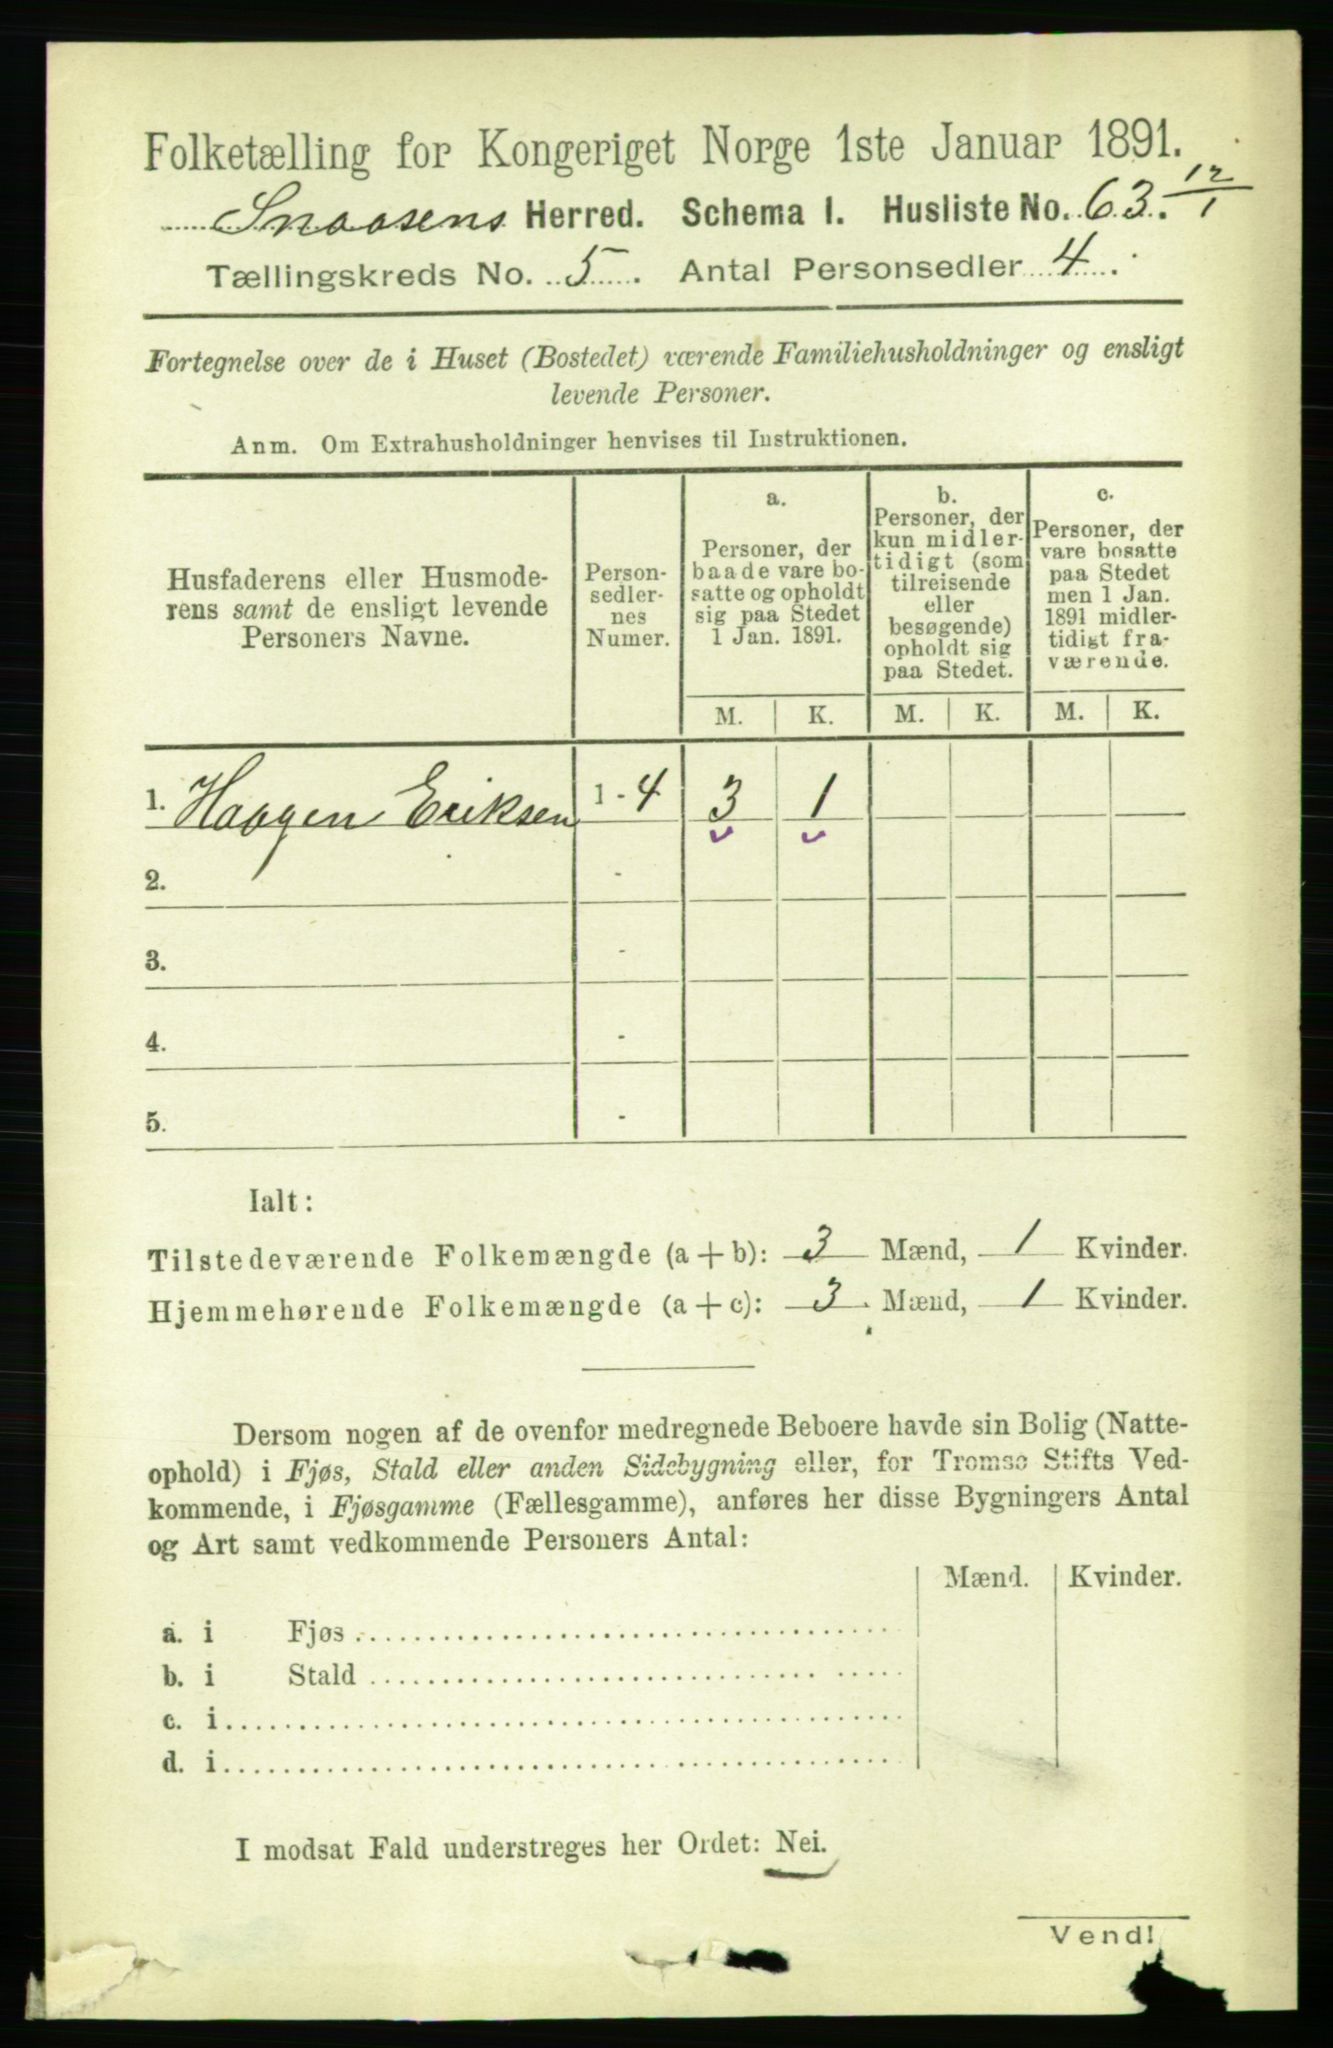 Folketælling for Kongeriget Norge 1ste Januar 1891.
Snaasens Herred. Schema 1. Husliste No. 63. 12/1
Tællingskreds No. 5. Antal Personsedler 4.
Fortegnelse over de i Huset (Bostedet) værende Familiehusholdninger og ensligt
levende Personer.
Anm. Om Extrahusholdninger henvises til Instruktionen.
Husfaderens eller Husmode-
rens samt de ensligt levende
Personers Navne.
Person-
sedler-
nes
Numer.
a.
Personer, der
baade vare bo-
satte og opholdt
sig paa Stedet
1 Jan. 1891.
b.
Personer, der
kun midler-
tidigt (som
tilreisende
eller
besøgende)
opholdt sig
paa Stedet.
c.
Personer, der
vare bosatte
paa Stedet
men 1 Jan.
1891 midler-
tidigt fra-
værende.
M. K. M. K. M. K.
1. Haagen Eriksen 1-4 3 1
2. -
3. -
4. -
5. -
Ialt:
Tilstedeværende Folkemængde (a+b): 3 Mænd, 1 Kvinder.
Hjemmehørende Folkemængde (a+c): 3. Mænd, 1 Kvinder.
Dersom nogen af de ovenfor medregnede Beboere havde sin Bolig (Natte-
ophold) i Fjøs, Stald eller anden Sidebygning eller, for Tromsø Stifts Ved-
kommende, i Fjøsgamme (Fællesgamme), anføres her disse Bygningers Antal
og Art samt vedkommende Personers Antal:
Mænd. Kvinder.
a. i Fjøs
b. i Stald
c. i
d. i
I modsat Fald understreges her Ordet: Nei.
Vend!